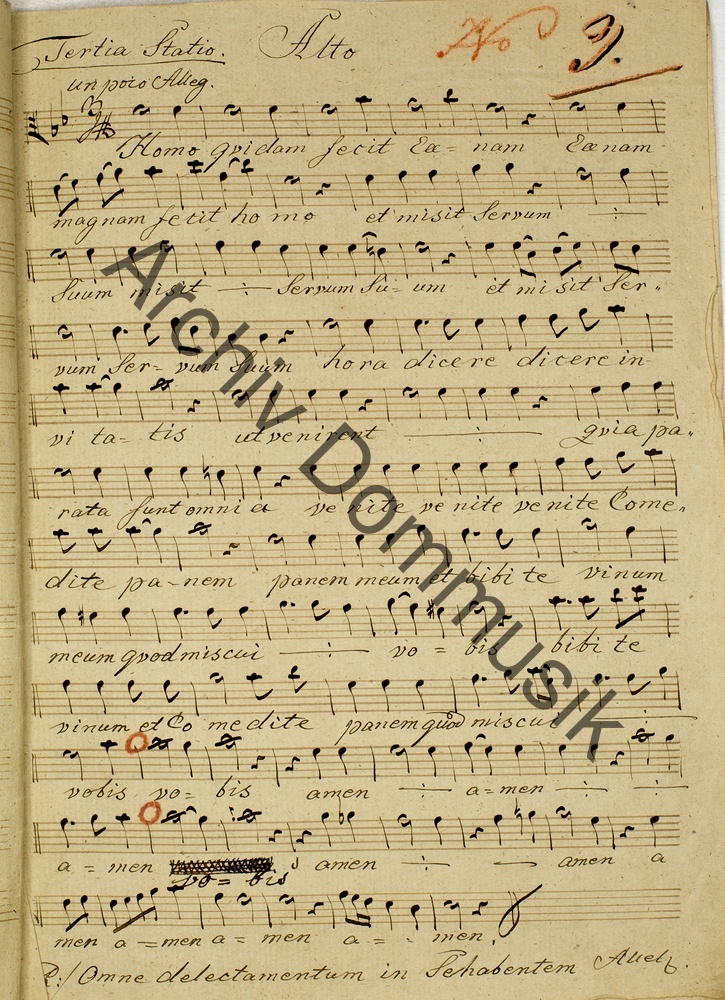 Tertia Statio. Alto No 9.
un poco Alleg.
Homo qvidam fecit Cœ= nam Cœnam
magnam fecit homo et misit Servum ·/·
Suum misit ·/· Servum Su= um et misit Ser„
vum Ser= vum Suum hora dicere dicere in-
vi ta= tis ut venirent ·/· qvia pa„
rata sunt omni a ve nite ve nite ve nite Come„
dite pa-nem panem meum et bibi te vinum
meum qvod miscui ·/· vo = bis bibi te
vinum et Co me dite panem quod miscui ·/·
vobis vo= bis amen ·/· a=men ·/· ·/·
a = men amen ·/· amen a
vo= bis
men a =men a= men a= . men.
R:/ Omne delectamentum in Se habentem Allel.
Archiv Dommusik